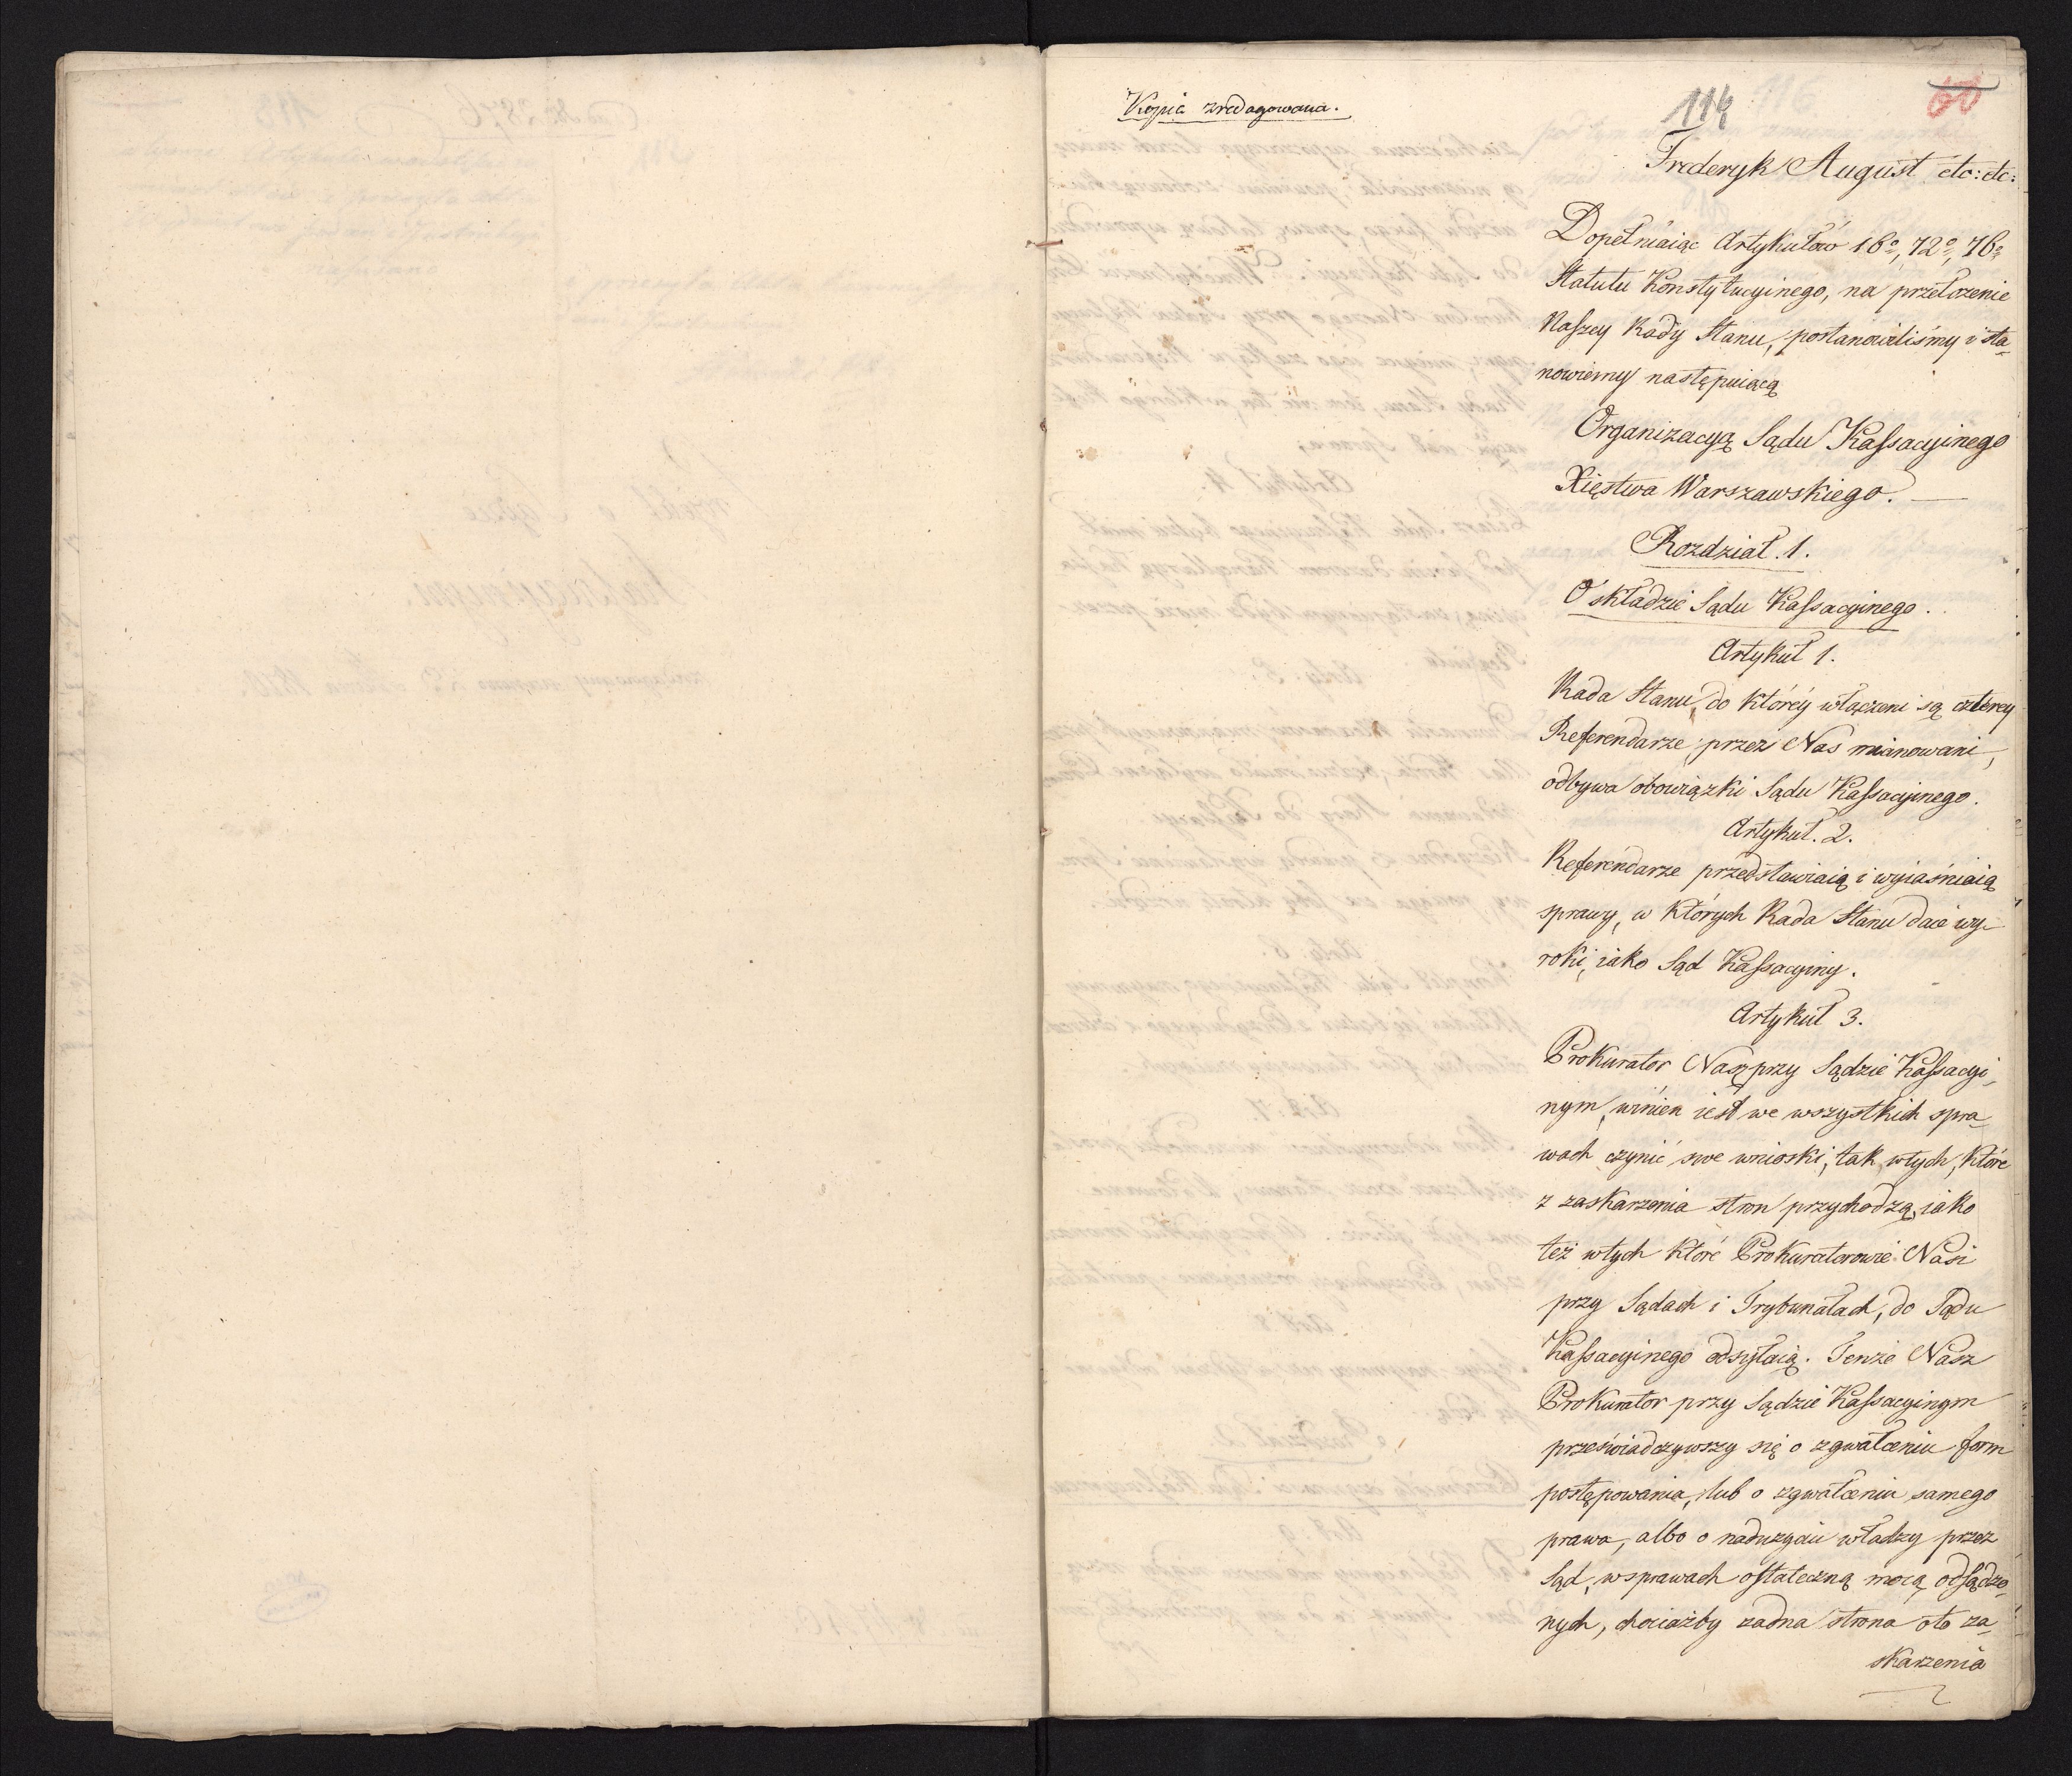 Kopia zredagowana.
114
116
60
Frederyk August etc: etc:
Dopełniaiąc Artykułów 16º, 72º, 76º
Statutu Konstytucyinego, na przełożenie
Naszey Rady Stanu, postanowiliśmy i sta-
nowiemy następuiącą
Organizacyą Sądu Kassacyinego
Xięstwa Warszawskiego.
Rozdział. 1.
O składzie Sądu Kassacyinego.
Artykuł 1.
Rada Stanu, do któréy włączeni są czterey
Referendarze przez Nas mianowani,
odbywa obowiązki Sądu Kassacyinego.
Artykuł. 2.
Referendarze przedstawiaią i wyiaśniaią
sprawy, w których Rada Stanu daie wy-
roki, iako Sąd Kassacyiny.
Artykuł 3.
Prokurator Nasz przy Sądzie Kassacyi-
nym, winien iest we wszystkich spra-
wach czynić swe wnioski, tak wtych, które
z zaskarzenia stron przychodzą, iako
też wtych które Prokuratorowie Nasi
przy Sądach i Trybunałach, do Sądu
Kassacyinego odsyłaią. Tenże Nasz
Prokurator przy Sądzie Kassacyinym
przeświadczywszy się o zgwałceniu form
postępowania, lub o zgwałceniu samego
prawa, albo o naduzyciu władzy przez
Sąd, wsprawach ostateczną mocą odsądzo-
nych, chociażby zadna strona oto za-
skarzenia